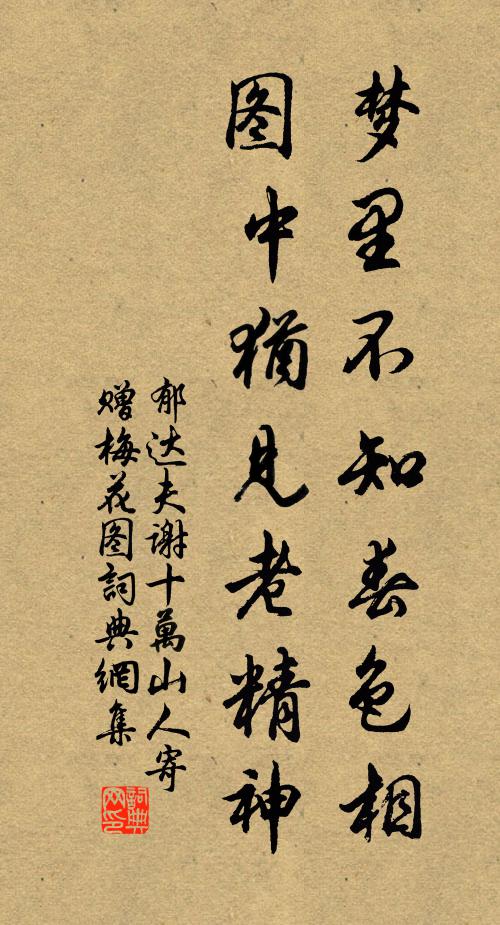 梦里不知春色相
图中犹见老精神
郁达夫谢十萬山人寄
赠梅花图詞典網集
詞典网印